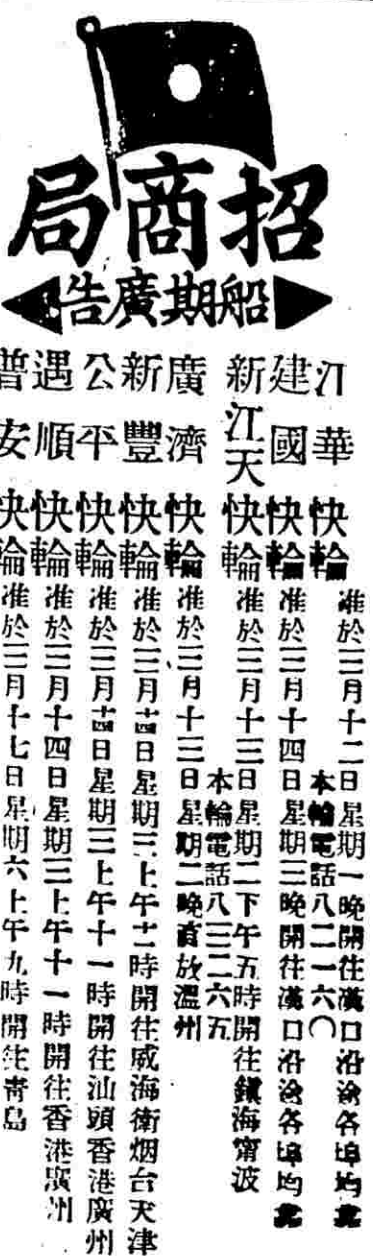 招商局
船期廣告
江華快輪准於三月十二日星期一晚開往漢口沿途各埠均靠
本輪電話八二一六〇
建國快輪准於三月十四日星期三晚開往漢口沿途各埠均靠
新江天快輪准於三月十三日星期二下午五時開往鎮海甯波
本輪電話八三二六五
廣濟快輪准於三月十三日星期二晚直放溫州
新豐快輪准於三月十四日星期三上午十二時開往威海衛烟台天津
公平快輪准於三月十四日星期三上午十一時開往汕頭香港廣州
遇順快輪准於三月十四日星期三上午十一時開往香港廣州
普安快輪准於三月十七日星期六上午九時開往青島